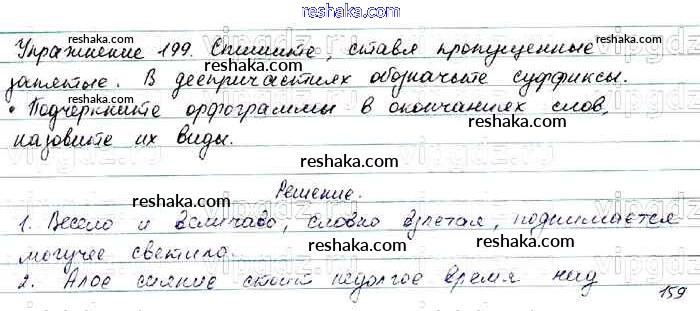 reshaka.com
Упражнение 199. Спишите, ставя пропущенные
запятые. В деепричастиях обозначьте суффиксы.
• Подчеркните орфограммы в окончаниях слов,
назовите их виды.
Решение.
1. Весело и величаво, словно взлетая, поднимается
могучее светило.
2. Алое сияние стоит недолгое время над
159